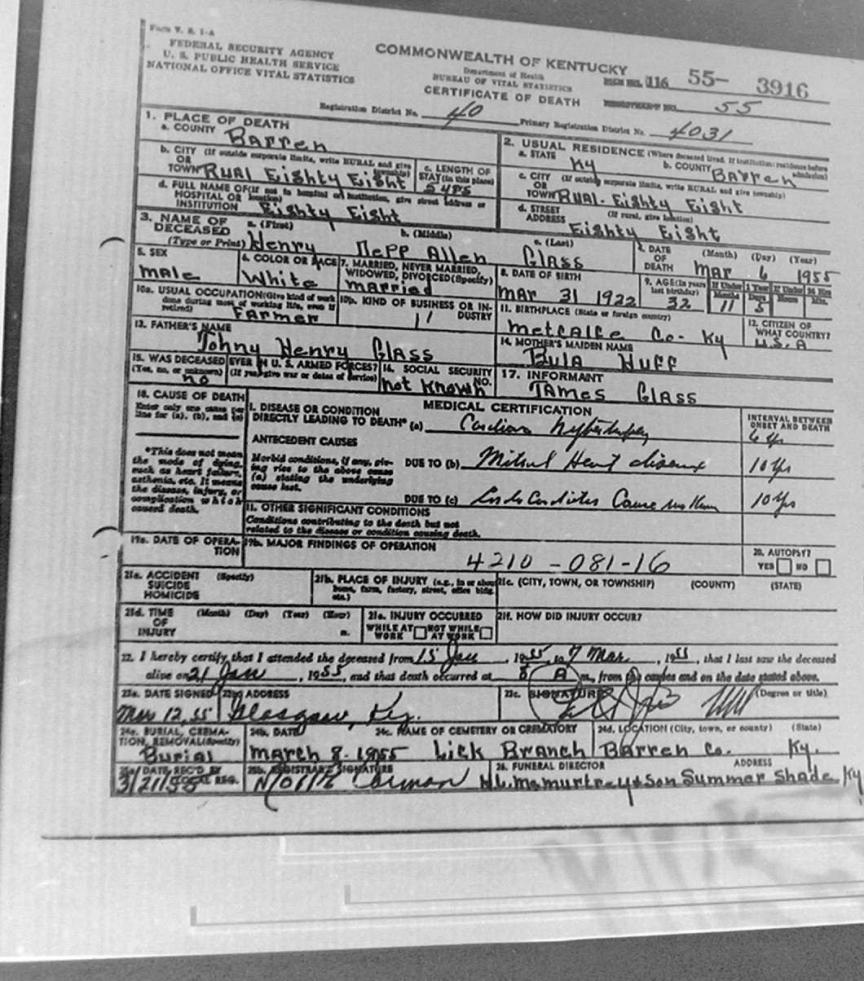 Form V. S. 1-A
FEDERAL SECURITY AGENCY
U. S. PUBLIC HEALTH SERVICE
NATIONAL OFFICE VITAL STATISTICS
COMMONWEALTH OF KENTUCKY
Department of Health
BUREAU OF VITAL STATISTICS
CERTIFICATE OF DEATH
116 55- 3916
55
Registration District No. 40 Primary Registration District No. 4031
1. PLACE OF DEATH
a. COUNTY Barren
b. CITY (If outside corporate limits, write RURAL and give township)
OR TOWN Rual Eighty Eight
c. LENGTH OF STAY (in this place) 5 yrs
d. FULL NAME OF (If not in hospital or institution, give street address or location)
HOSPITAL OR INSTITUTION Eighty Eight
2. USUAL RESIDENCE (Where deceased lived. If institution: residence before admission)
a. STATE Ky
b. COUNTY Barren
c. CITY (If outside corporate limits, write RURAL and give township)
OR TOWN Rual. Eighty Eight
d. STREET ADDRESS (If rural, give location)
Eighty Eight
3. NAME OF DECEASED (Type or Print)
a. (First) b. (Middle) c. (Last)
Henry Nepp Allen Glass
4. DATE OF DEATH (Month) (Day) (Year)
Mar 6 1955
5. SEX
male
6. COLOR OR RACE
White
7. MARRIED, NEVER MARRIED, WIDOWED, DIVORCED (Specify)
married
8. DATE OF BIRTH
Mar 31 1922
9. AGE (In years last birthday) 32
If Under 1 Year Months 11 Days 5
If Under 24 Hrs Hours Min.
10a. USUAL OCCUPATION (Give kind of work done during most of working life, even if retired)
Farmer
10b. KIND OF BUSINESS OR INDUSTRY
11
11. BIRTHPLACE (State or foreign country)
Metcalfe Co- Ky
12. CITIZEN OF WHAT COUNTRY?
U.S.A
13. FATHER'S NAME
Johny Henry Glass
14. MOTHER'S MAIDEN NAME
Bula Huff
15. WAS DECEASED EVER IN U. S. ARMED FORCES?
(Yes, no, or unknown) (If yes, give war or dates of service)
no
16. SOCIAL SECURITY NO.
not known
17. INFORMANT
James Glass
18. CAUSE OF DEATH
Enter only one cause per line for (a), (b), and (c)
*This does not mean the mode of dying, such as heart failure, asthenia, etc. It means the disease, injury, or complication which caused death.
MEDICAL CERTIFICATION
INTERVAL BETWEEN ONSET AND DEATH
I. DISEASE OR CONDITION
DIRECTLY LEADING TO DEATH* (a) Cardiac 6 yrs
ANTECEDENT CAUSES
Morbid conditions, if any, giving rise to the above cause (a) stating the underlying cause last.
DUE TO (b) Mitral Heart disease 10 yrs
DUE TO (c) Endocarditis Cause 10 yrs
II. OTHER SIGNIFICANT CONDITIONS
Conditions contributing to the death but not related to the disease or condition causing death.
19a. DATE OF OPERATION
19b. MAJOR FINDINGS OF OPERATION
4210 - 081-16
20. AUTOPSY?
YES NO
21a. ACCIDENT (Specify)
SUICIDE
HOMICIDE
21b. PLACE OF INJURY (e.g., in or about home, farm, factory, street, office bldg. etc.)
21c. (CITY, TOWN, OR TOWNSHIP) (COUNTY) (STATE)
21d. TIME (Month) (Day) (Year) (Hour)
OF INJURY m.
21e. INJURY OCCURRED
WHILE AT WORK NOT WHILE AT WORK
21f. HOW DID INJURY OCCUR?
22. I hereby certify that I attended the deceased from 15 Jan, 1955 to 7 Mar, 1955, that I last saw the deceased
alive on 21 Jan, 1955, and that death occurred at 8 A m., from the causes and on the date stated above.
23a. DATE SIGNED
Mar 12, 55
23b. ADDRESS
Glasgow, Ky.
23c. SIGNATURE (Degree or title)
24a. BURIAL, CREMATION, REMOVAL (Specify)
Burial
24b. DATE
March 8. 1955
24c. NAME OF CEMETERY OR CREMATORY
Lick Branch
24d. LOCATION (City, town, or county) (State)
Barren Co. Ky.
25a. DATE REC'D BY LOCAL REG.
3/21/55
25b. REGISTRAR'S SIGNATURE
26. FUNERAL DIRECTOR ADDRESS
H.L. McMurtrey & Son Summer Shade Ky